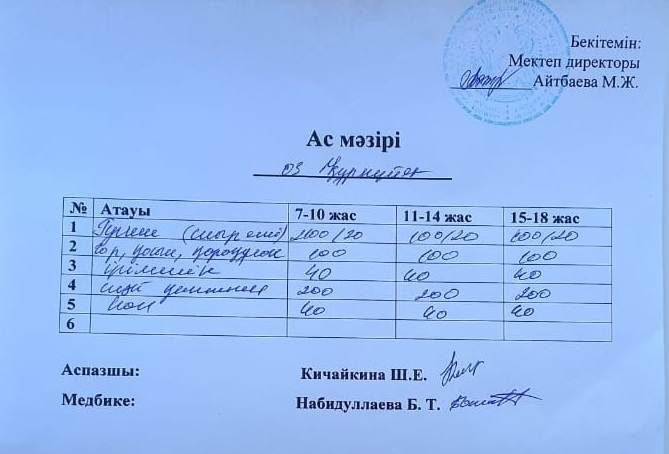 Бекітемін:
Мектеп директоры
Айтбаева М.Ж.
Ас мәзірі
03
№ Атауы 7-10 жас 11-14 жас 15-18 жас
1 Гуляш (сиыр еті) 100/20 100/20
2 100 100 100
3 ірімшік 40 40 40
4 200 200 200
5 нан 40 40 40
6
Аспазшы: Кичайкина Ш.Е.
Медбике: Набидуллаева Б. Т.